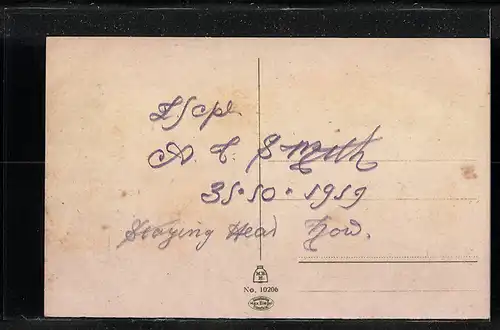 A. C. Smith
35.10.1919
Staying Head Now.
No. 10206